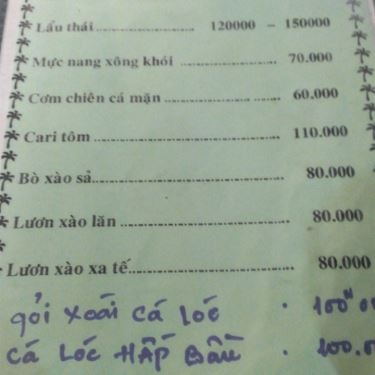 Lẩu thái............................ 120000 - 150000
Mực nang xông khói ........................ 70.000
Cơm chiên cá mặn ........................... 60.000
Cari tôm ........................................ 110.000
Bò xào sả........................................ 80.000
Lươn xào lăn .................................... 80.000
Lươn xào xa tế.................................. 80.000
gỏi xoài cá lóc .
cá lóc HẤP Bầu .